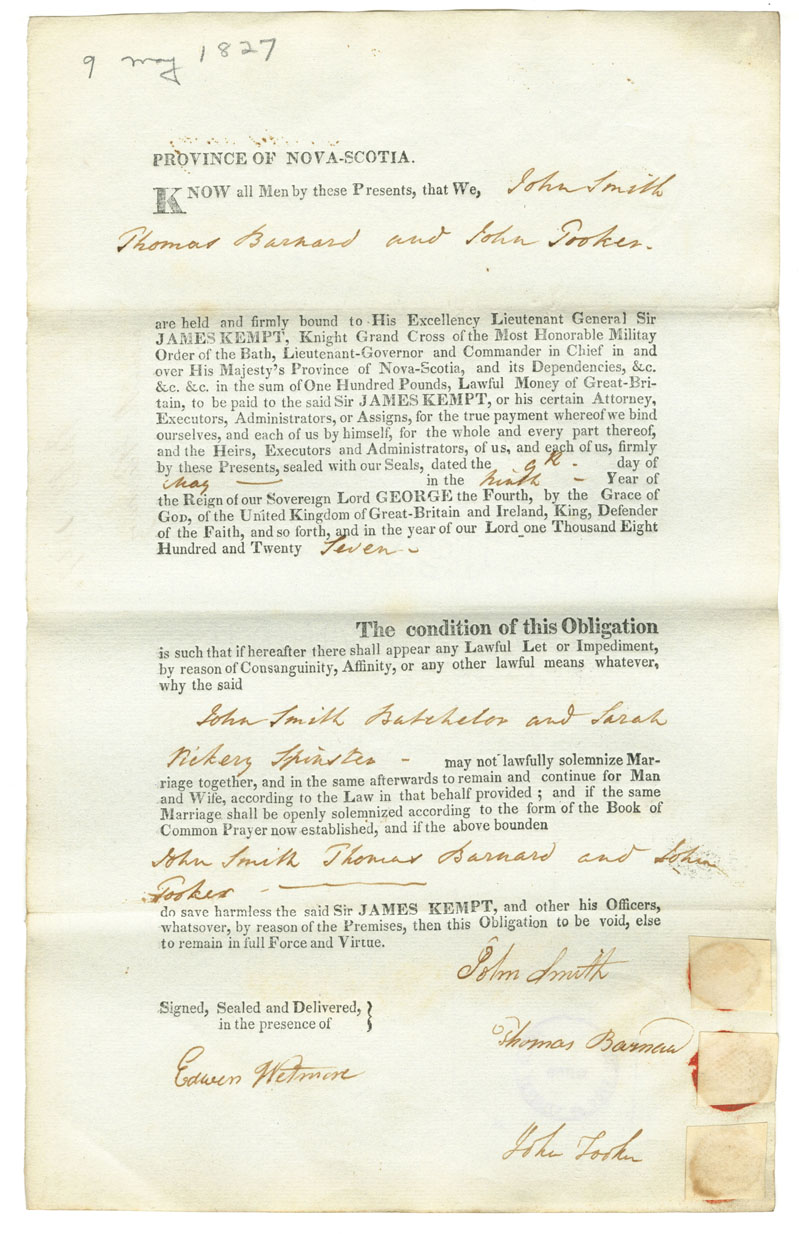 9 may 1827
PROVINCE OF NOVA-SCOTIA.
KNOW all Men by these Presents, that We, John Smith
Thomas Barnard and John Tooker.
are held and firmly bound to His Excellency Lieutenant General Sir
JAMES KEMPT, Knight Grand Cross of the Most Honorable Militay
Order of the Bath, Lieutenant-Governor and Commander in Chief in and
over His Majesty's Province of Nova-Scotia, and its Dependencies, &c.
&c. &c. in the sum of One Hundred Pounds, Lawful Money of Great-Bri-
tain, to be paid to the said Sir JAMES KEMPT, or his certain Attorney,
Executors, Administrators, or Assigns, for the true payment whereof we bind
ourselves, and each of us by himself, for the whole and every part thereof,
and the Heirs, Executors and Administrators, of us, and each of us, firmly
by these Presents, sealed with our Seals, dated the 9th - day of
May — in the Ninth - Year of
the Reign of our Sovereign Lord GEORGE the Fourth, by the Grace of
GOD, of the United Kingdom of Great-Britain and Ireland, King, Defender
of the Faith, and so forth, and in the year of our Lord one Thousand Eight
Hundred and Twenty Seven -
The condition of this Obligation
is such that if hereafter there shall appear any Lawful Let or Impediment,
by reason of Consanguinity, Affinity, or any other lawful means whatever,
why the said
John Smith Batchelor and Sarah
Vickery Spinster - may not lawfully solemnize Mar-
riage together, and in the same afterwards to remain and continue for Man
and Wife, according to the Law in that behalf provided ; and if the same
Marriage shall be openly solemnized according to the form of the Book of
Common Prayer now established, and if the above bounden
John Smith Thomas Barnard and John
Tooker - —
do save harmless the said Sir JAMES KEMPT, and other his Officers,
whatsover, by reason of the Premises, then this Obligation to be void, else
to remain in full Force and Virtue.
John Smith
Signed, Sealed and Delivered, }
in the presence of
Thomas Barnard
Edwin Wetmore
John Tooker